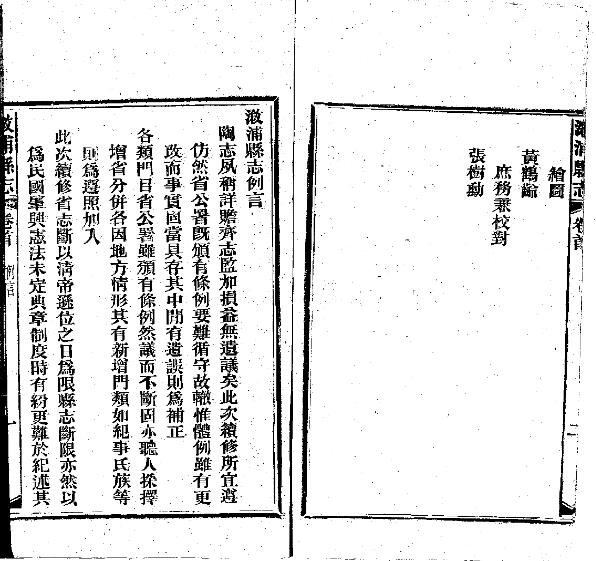 漵浦縣志
卷首
二
繪圖
黃鶴齡
庶務兼校對
張樹勳
漵浦縣志例言
陶志夙稱詳贍齊志監加損益無遺議矣此次續修所宜遵
仿然省公署既頒有條例要難循守故轍惟體例雖有更
改而事實固當具存其中間有遺誤則爲補正
各類門目省公署雖頒有條例然議而不斷固亦聽人採擇
增省分併各因地方情形其有新增門類如紀事氏族等
則爲遵照加入
此次續修省志斷以清帝遜位之日爲限縣志斷限亦然以
爲民國肇興憲法未定典章制度時有紛更難於紀述其
漵浦縣志
卷首
例言
一